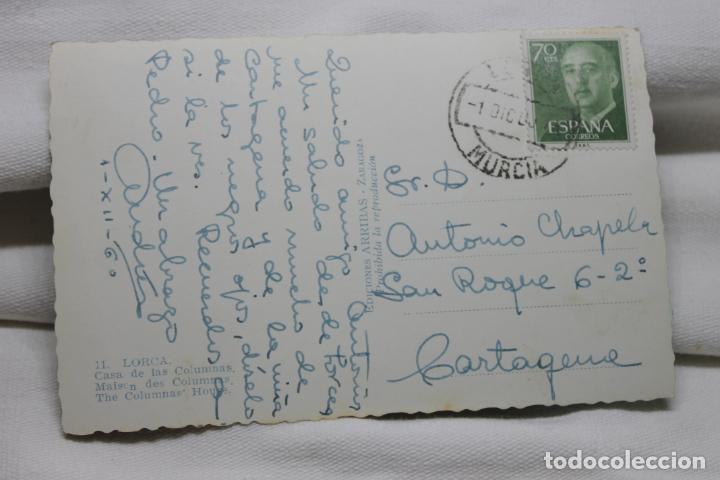 Querido amigo Antonio
Mi saludo desde Lorca
me acuerdo mucho de
Cartagena y de la niña
de los negros ojos, díselo
si la ves. Recuerdos a
Pedro. Un abrazo
1-XII-60
11. LORCA.
Casa de las Columnas.
Maison des Columnas.
The Columnas' House.
EDICIONES ARRIBAS - ZARAGOZA
Prohibida la reproducción
70 CTS
ESPAÑA
CORREOS
-1 DIC 60
MURCIA
Sr. D.
Antonio Chapela
San Roque 6-2º
Cartagena
todocoleccion.net